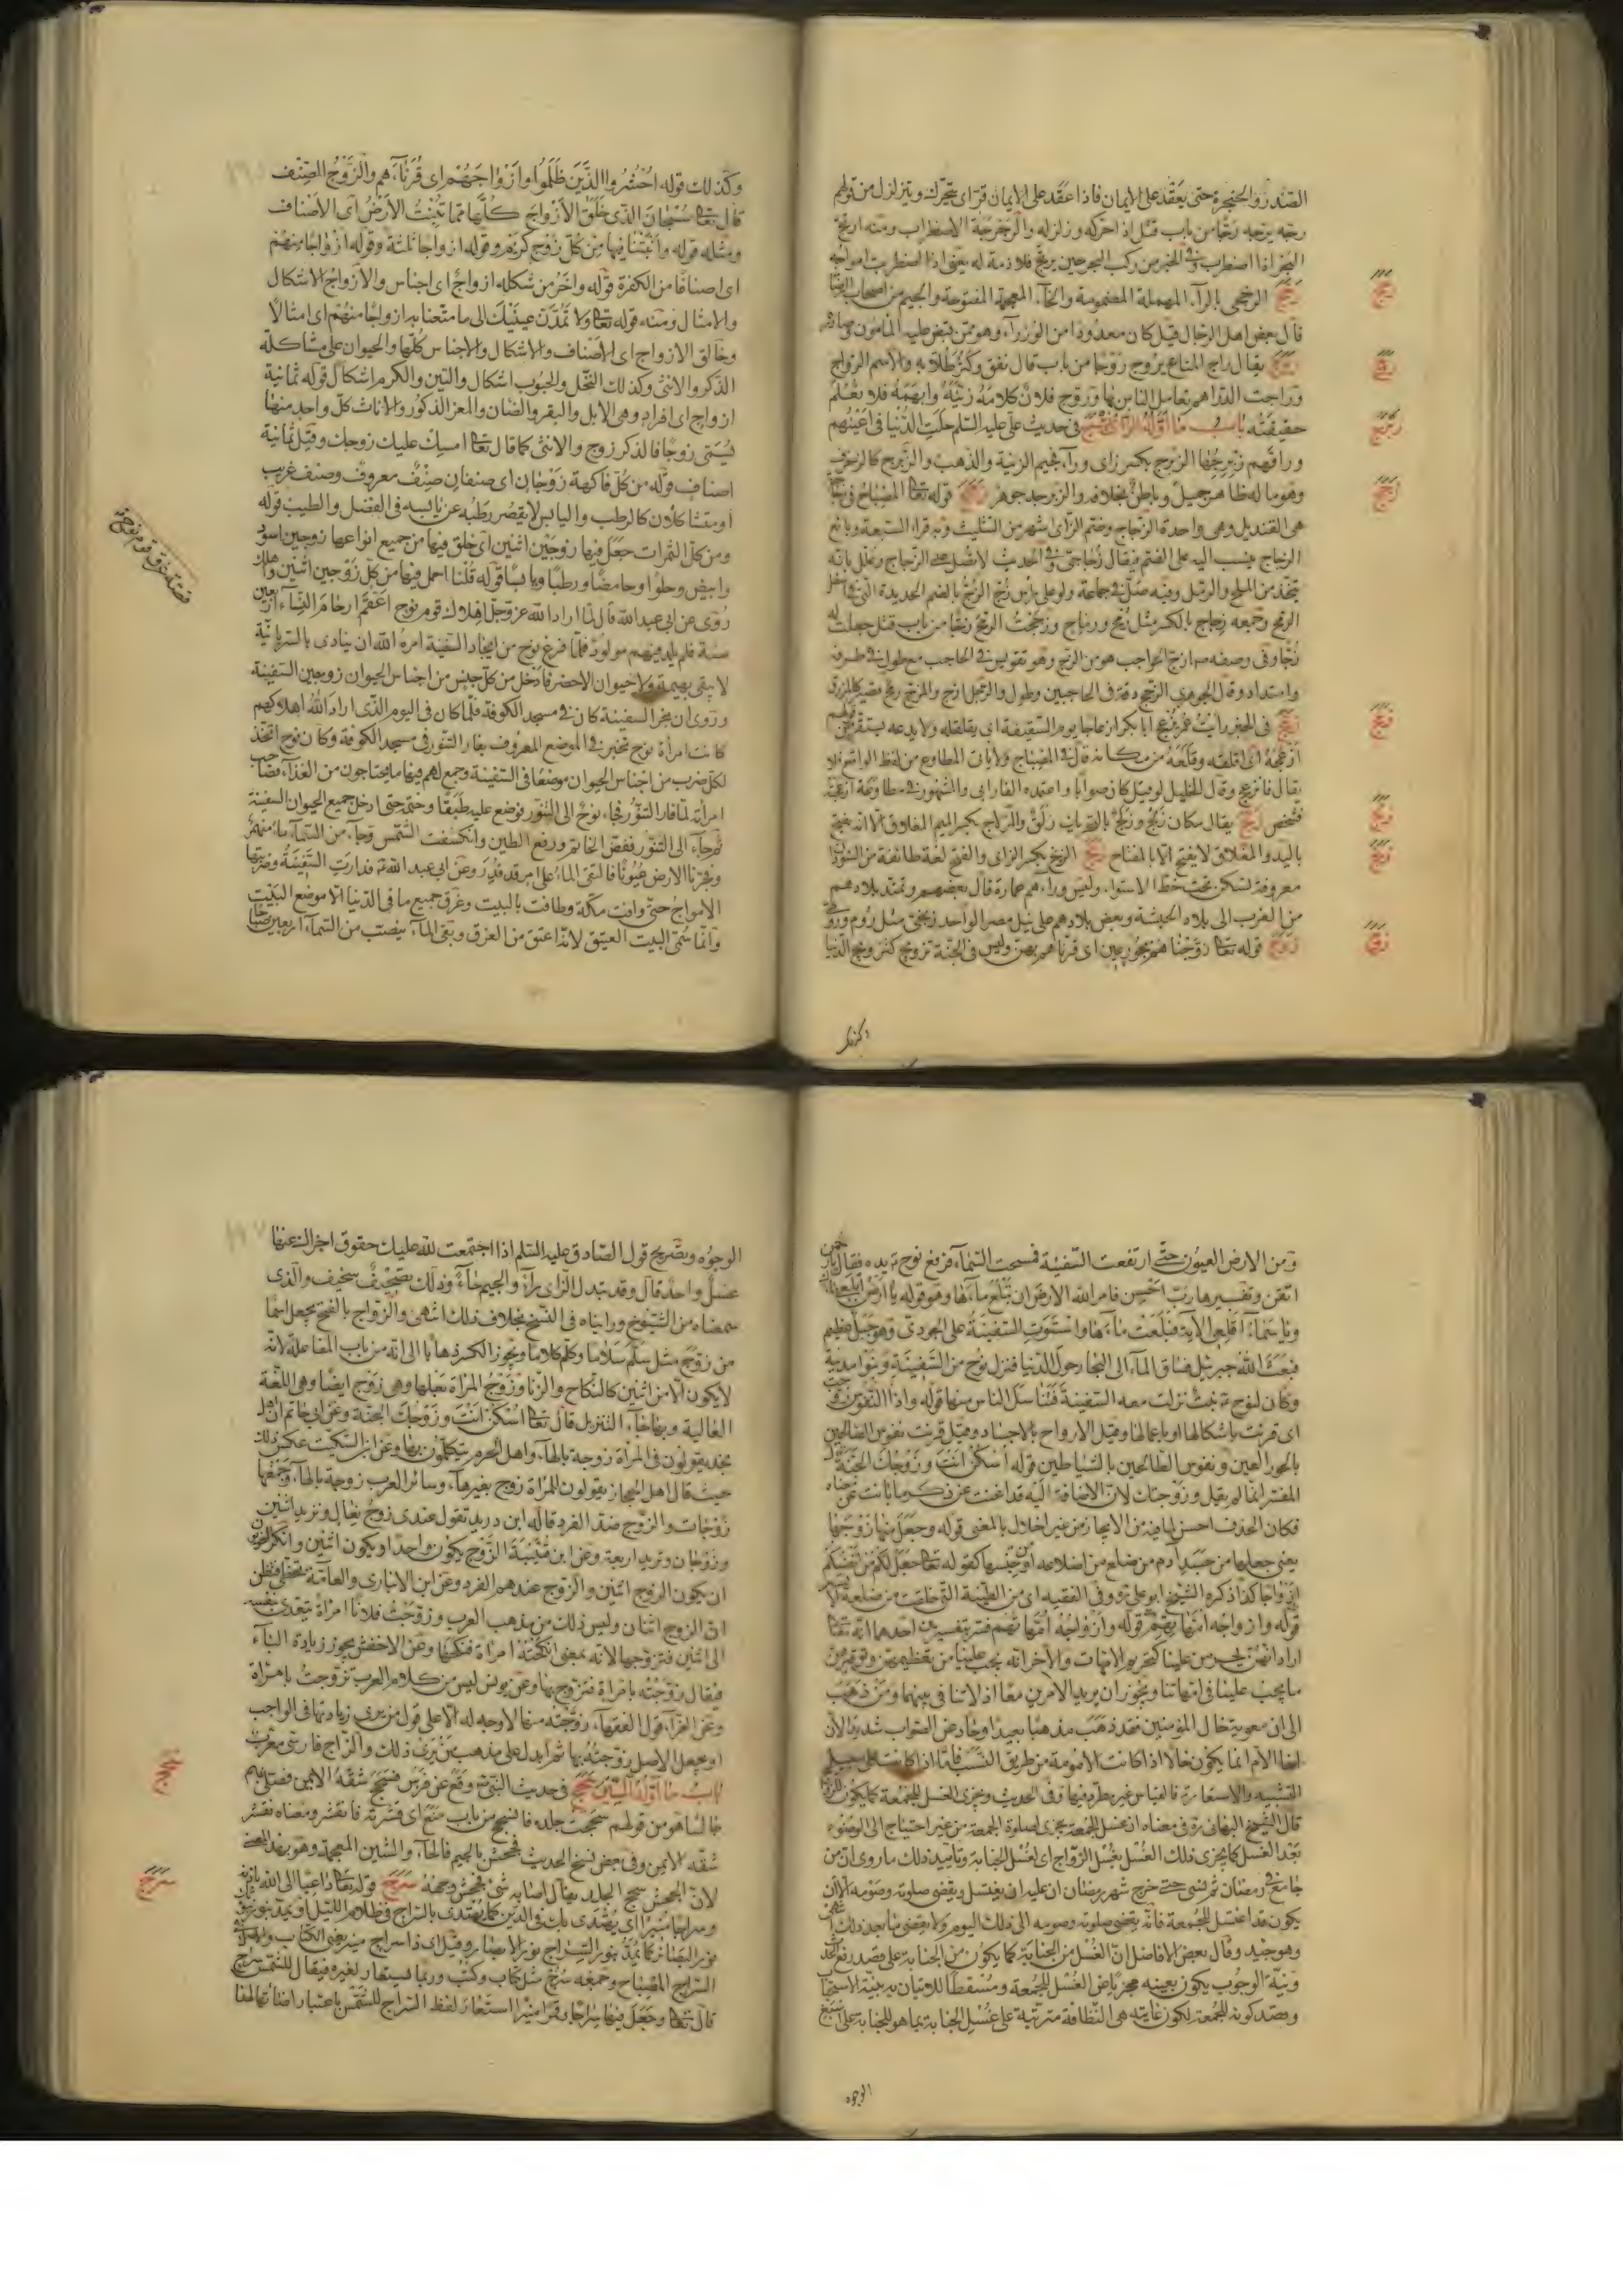 الصدر والحنجرة حتى يعقد على الايمان فاذا عقد على الايمان قرّ اى يتحرك ويتزلزل من قولهم
رجّه يرجّه رجّا من باب قتل اذا حركه وزلزله والرجرجة الاضطراب ومنه ارتجّ
البحر اذا اضطرب وفى الخبر من ركب البحر حين يرتجّ فلا ذمة له يعنى اذا اضطربت امواجه
الرخجى بالراء المهملة المضمومة والخاء المعجمة المفتوحة والجيم من اصحاب الرضا
قال بعض اهل الرجال قيل كان معدودا من الوزراء وهو ممن قبض عليه المأمون
روج يقال راج المتاع يروج روجا من باب قال نفق وكثر طلابه والاسم الرواج
وراجت الدراهم تعامل الناس بها وروّج فلان كلامه زيّنه وابهمه فلا تعلم
حقيقته باب ما اوّله الزاى زبرج فى حديث على عليه السلم حليت الدنيا فى اعينهم
وراقهم زبرجها الزبرج بكسر زاى وراء فجيم الزينة والذهب والزبرج كالزخرف
وهو ما له ظاهر جميل وباطن بخلافه والزبرجد جوهر زجج قوله تعا المصباح فى زجاجة
هى القنديل وهى واحدة الزجاج وضم الزاى اشهر من التثليث وبه قرأ السبعة وبائع
الزجاج ينسب اليه على الضم فيقال زجاجىّ وفى الحديث لا تصلّ على الزجاج وعلل بانه
يتخذ من الملح والرمل وفيه صلّى فى جماعة ولو على رأس زجّ الزجّ بالضم الحديدة التى فى اسفل
الرمح وجمعه زجاج بالكسر مثل رمح ورماح وزججت الرمح زجّا من باب قتل جعلت له
زجّا وفى وصفه ص ازجّ الحواجب هو من الزجج وهو تقويس فى الحاجب مع طول فى طرفه
وامتداد وقال الجوهرى الزجج دقة فى الحاجبين وطول والرجل ازجّ والمزجّ رمح قصير كالمزراق
زعج فى الخبر رايت عمر يزعج ابا بكر ازعاجا يوم السقيفة اى يقلقله ولا يدعه يستقر
ازعجه اى اقلقه وقلعه من مكانه قال فى المصباح ولا يأت المطاوع من لفظ الواقع فلا
يقال فانزعج وقال الخليل لو قيل كان صوابا واعتمده الفارابى والمشهور فى مطاوعه ازعجته
فشخص زلج يقال مكان زلج وزلج بالتحريك زلق والزلاج بكسر الميم المغلاق الا انه يفتح
باليد والمغلاق لا يفتح الا بالمفتاح زنج الزنج بكسر الزاى والفتح لغة طائفة من السودان
معروفة تسكن تحت خط الاستواء وليس وراءهم عمارة قال بعضهم وتمتد بلادهم
من المغرب الى بلاد الحبشة وبعض بلادهم على نيل مصر الواحد زنجى مثل روم ورومى
زوج قوله تعا زوّجناهم بحور عين اى قرنّاهم بهن وليس فى الجنة تزويج كتزويج الدنيا
وكذلك قوله احشروا الذين ظلموا وازواجهم اى قرناءهم والزوج الصنف
قال تعا سبحان الذى خلق الازواج كلها مما تنبت الارض اى الاصناف
ومثله قوله وانبتنا فيها من كل زوج كريم وقوله ازواجا ثلثة وقوله ازواجا منهم
اى اصنافا من الكفرة قوله واخر من شكله ازواج اى اجناس والازواج الاشكال
والامثال ومنه قوله تعا ولا تمدّن عينيك الى ما متعنا به ازواجا منهم اى امثالا
وخالق الازواج اى الاصناف والاشكال والاجناس كلها والحيوان على مشاكلة
الذكر والانثى وكذلك النخل والحبوب اشكال والتين والكرم اشكال قوله ثمانية
ازواج اى افراد وهى الابل والبقر والضان والمعز الذكور والاناث كل واحد منها
يسمّى زوجا فالذكر زوج والانثى كما قال تعا امسك عليك زوجك وقيل ثمانية
اصناف قوله من كل فاكهة زوجان اى صنفان صنف معروف وصنف غريب
او متشاكلان كالرطب واليابس لا يقصر رطبه عن يابسه فى الفضل والطيب قوله
ومن كل الثمرات جعل فيها زوجين اثنين اى خلق فيها من جميع انواعها زوجين اسود
وابيض وحلوا وحامضا ورطبا ويابسا قوله قلنا احمل فيها من كل زوجين اثنين واهلك
روى عن ابى عبد الله قال لما اراد الله عز وجل اهلاك قوم نوح اعقم ارحام النساء اربعين
سنة فلم يلد فيهم مولود فلما فرغ نوح من اتخاذ السفينة امره الله ان ينادى بالسريانية
لا يبقى بهيمة ولا حيوان الا حضر فادخل من كل جنس من اجناس الحيوان زوجين السفينة
وروى ان نجر السفينة كان فى مسجد الكوفة فلما كان فى اليوم الذى اراد الله اهلاكهم
كانت امرأة نوح تخبز فى الموضع المعروف بفار التنور فى مسجد الكوفة وكان نوح اتخذ
لكل ضرب من اجناس الحيوان موضعا فى السفينة وجمع لهم فيها ما يحتاجون من الغذاء فصاحت
امرأته لما فار التنور فجاء نوح الى التنور فوضع عليه طبقا وختمه حتى ادخل جميع الحيوان السفينة
ثم جاء الى التنور ففض الخاتم ورفع الطين وانكسفت الشمس وجاء من السماء ماء منهمر
وفجرنا الارض عيونا فالتقى الماء على امر قد قدر وعن ابى عبد الله ثم فدارت السفينة وضربتها
الامواج حتى وافت مكة وطافت بالبيت وغرق جميع ما فى الدنيا الا موضع البيت
وانما سمّى البيت العتيق لانه اعتق من الغرق وبقى الماء ينصب من السماء اربعين صباحا
قصة غرق قوم نوح
ومن الارض العيون حتى ارتفعت السفينة فمسحت السماء فرفع نوح يديه فقال
اتقن وتفسيرها ربّ احسن فامر الله الارض ان تبلع ماءها وهو قوله يا ارض ابلعى ماءك
ويا سماء اقلعى الاية فبلعت ماءها واستوت السفينة على الجودى وهو جبل عظيم
فبعث الله جبرئيل فساق الماء الى البحار حول الدنيا فنزل نوح من السفينة وبنوا مدينة
وكان لنوح بنت نزلت معه السفينة فتناسل الناس منها قوله واذا النفوس زوجت
اى قرنت باشكالها او باعمالها وقيل الارواح بالاجساد وقيل قرنت نفوس الصالحين
بالحور العين ونفوس الطالحين بالشياطين قوله اسكن انت وزوجك الجنة
المفسر انما لم يقل وزوجتك لان الاضافة اليه قد اغنت عن ذكره
فكان الحذف احسن لما فيه من الايجاز من غير اخلال بالمعنى قوله وجعل منها زوجها
يعنى جعلها من جسد آدم من ضلع من اضلاعه او من جنسها كقوله تعا جعل لكم من انفسكم
ازواجا كذا ذكره الشيخ ابو على وفى الفقيه اى من الطينة التى خلقت من ضلعه الايسر
قوله وازواجه امهاتهم قوله وازواجه امهاتهم فسر بتفسيرين احدهما انه تعا
اراد انهن يحرمن علينا كتحريم الامهات والآخر انه يجب علينا من تعظيمهن وتوقيرهن
ما يجب علينا فى امهاتنا ويجوز ان يريد الامرين معا اذ لا تنافى بينهما ومن ذهب
الى ان معوية خال المؤمنين فقد ذهب مذهبا بعيدا وحاد عن الصواب شديدا لان
اخا الام انما يكون خالا اذا كانت الامومة من طريق النسب فاما اذا كانت على سبيل
التشبيه والاستعارة فالقياس غير مطرد فيها وفى الحديث ويجزى الغسل للجمعة كما يكون للزواج
قال الشيخ البهائى ره فى معناه ان غسل الجمعة يجزى لصلوة الجمعة من غير احتياج الى الوضوء
بعد الغسل كما يجزى ذلك الغسل بغسل الزواج اى لغسل الجنابة وتأييد ذلك ما روى ان من
جامع فى رمضان ثم نسى حتى خرج شهر رمضان ان عليه ان يغتسل ويقضى صلوته وصومه الا ان
يكون قد اغتسل للجمعة فانه يقضى صلوته وصومه الى ذلك اليوم ولا يقضى ما بعد ذلك
وهو جيد وقال بعض الافاضل ان الغسل من الجنابة كما يكون من الجنابة على قصد رفع الحدث
ونية الوجوب يكون بعينه مجزيا عن الغسل للجمعة ومسقطا للاتيان به بنية الاستحباب
وقصد كونه للجمعة لكون غايته هى النظافة مترتبة على غسل الجنابة بما هو للجنابة على اسبغ
الوجوه
الوجوه وتصريح قول الصادق عليه السلم اذا اجتمعت لله عليك حقوق اجزاك عنها
غسل واحد قال وقد تبدل الزاى براء والجيم بحاء وذلك تصحيف سخيف والذى
سمعناه من الشيوخ ورايناه فى النسخ بخلاف ذلك انتهى والزواج بالفتح يجعل اسما
من زوّج مثل سلّم سلاما وكلّم كلاما ويجوز الكسر ذهابا الى انه من باب المفاعلة لانه
لا يكون الا من اثنين كالنكاح والزنا وزوج المرأة بعلها وهى زوج ايضا وهى اللغة
الغالية وبها جاء التنزيل قال تعا اسكن انت وزوجك الجنة وعن ابى حاتم اهل
نجد يقولون فى المرأة زوجة بالهاء واهل الحرم يتكلمون بها وعن ابن السكيت عكس ذلك
حيث قال اهل الحجاز يقولون للمرأة زوج بغيرهاء وسائر العرب زوجة بالهاء وجمعها
زوجات والزوج ضد الفرد قاله ابن دريد تقول عندى زوج نعال وتريد اثنين
وزوجان وتريد اربعة وعن ابن قتيبة الزوج يكون واحدا ويكون اثنين وانكر النحويون
ان يكون الزوج اثنين والزوج عندهم الفرد وعن ابن الانبارى والعامة تخطئ فتظن
ان الزوج اثنان وليس ذلك من مذهب العرب وزوّجت فلانا امرأة يتعدى بنفسه
الى اثنين فتزوجها لانه بمعنى انكحته امرأة فنكحها وعن الاخفش يجوز زيادة الباء
فيقال زوّجته بامرأة فتزوج بها وعن يونس ليس من كلام العرب تزوجت بامرأة
وعن الفراء قول الفقهاء زوّجته منها لا وجه له الا على قول من يرى زيادتها فى الواجب
او يجعل الاصل زوّجته بها ثم ابدل على مذهب من يرى ذلك والزاج فارسى معرّب
باب ما اوّله السين سحج فى حديث النبى ص وقع عن فرس فسحج شقّه الايمن فصلى بهم
جالسا هو من قولهم سحجت جلده فانسحج من باب منع اى قشرته فانقشر ومعناه تقشّر
شقّه الايمن وفى بعض نسخ الحديث فجحش بالجيم فالحاء والشين المعجمة وهو بهذا المعنى
لان الجحش سحج الجلد يقال اصابه شىء فجحش وجهه سرج قوله تعا داعيا الى الله باذنه
وسراجا منيرا اى يهتدى بك فى الدين كما يهتدى بالسراج فى ظلام الليل او يمدّ بنورك
نور البصائر كما يمدّ بنور السراج نور الابصار وقيل اى ذا سراج منير يعنى الكتاب
السراج المصباح وجمعه سرج مثل كتاب وكتب وربما يستعار لغيره فيقال للشمس سراج
قال تعا وجعل فيها سراجا وقمرا منيرا استعار لفظ السراج للشمس باعتبار اضائتها لهذا
سحج
سرج